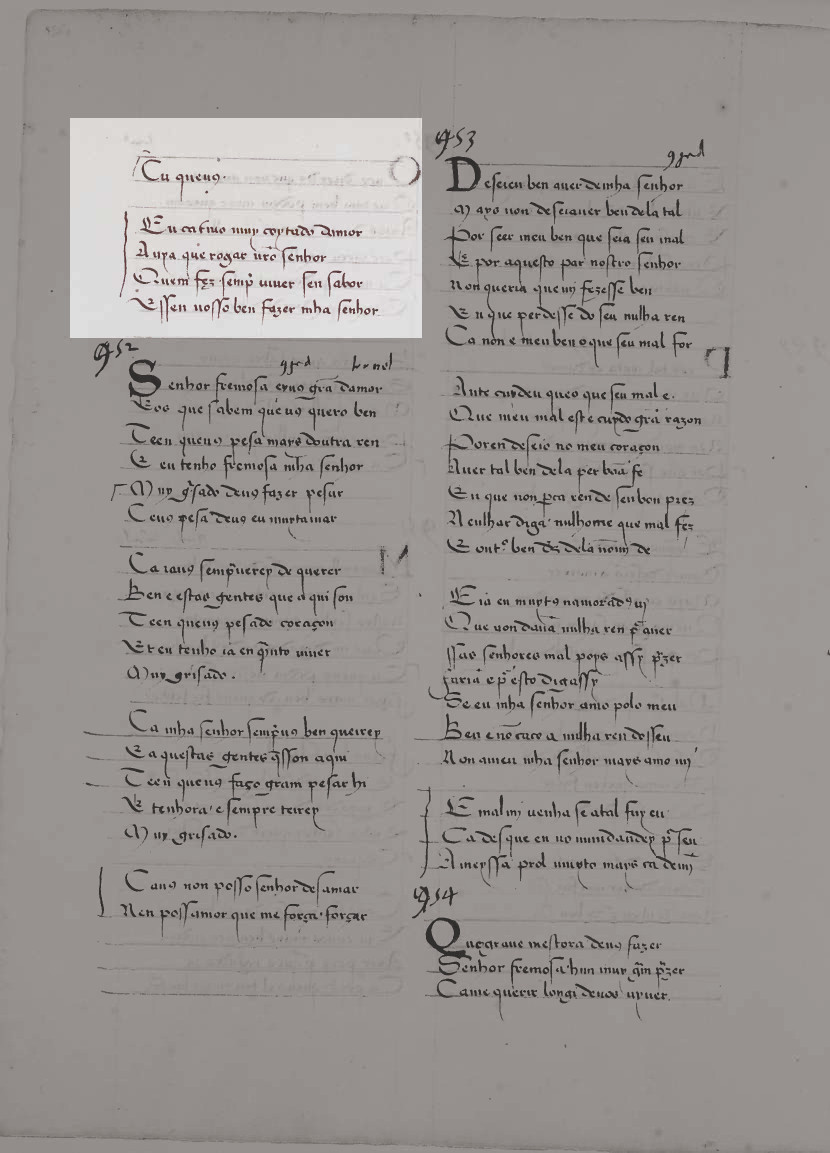 Tu queuꝯ.
Eu catiuo muy coytado damor
Auya que rogar ur̃o senhor
Quem fez semp̃ uiuer sen sabor
Essen uosso ben fazer mha senhor
452
gꝛꝛd bꝛnel
Senhor fremosa eyuꝯ gr̃a damor
Eos que sabem que uꝯ quero ben
Teen queuꝯ pesa mays doutra ren
E eu tenho fremosa mh̃a senhor
Muy g̃sado deuꝯ fazer pesar
Ceuꝯ pesa deuꝯ eu muytamar
Ca iauꝯ semp̃uerey de querer
Ben e estas gentes que a qui son
Teen queuꝯ pesade coraçon
Et eu tenho ia en q̃nto uiuer
Muy grisado.
Ca mha senhor semp̃uꝯ ben queirey
E aquestas gentes q̃sson aqui
Teen queuꝯ faço gram pesar hi
E tenhora e sempre teirey
Muy grisado.
Cauꝯ non posso senhor desamar
Nen possamor que me força forçar
453
Deseieu ben auer demha senhor
Mays non deseiauer ben dela tal
Por seer meu ben que seia seu mal
E por aquesto par nostro senhor
Non queria que mj fezesse ben
En que perdesse do seu nulha ren
Ca non e meu ben o que seu mal for
Ante cuydeu queo que seu mal e.
Que meu mal est e cuydo gr̃a razon
Poren deseio no meu coraçon
Auer tal ben dela per boã fe
En que non p̃ca ren de seu bon prez
Nen lhar diga nulhome que mal fez
E out.º ben d̃s dela nõmj de
E ia eu muytꝯ namoradꝯ uj
Que non dauã nulha ren p̃ auer
Ssas senhores mal poys assy p̃zer
faria e p̃ esto digassy
Se eu mha senhor amo polo meu
Ben e nõ cato a nulha ren do sseu
Non ameu mha senhor mays amo mj
E mal mj uenha se atal fuy eu
Ca des que eu no mundandey p̃ seu
Ameyssa prol muyto mays ca demj
454
Que graue mestora deuꝯ fazer
Senhor fremosa hun muy gr̃n p̃zer
Came querir longi deuos uyuer.